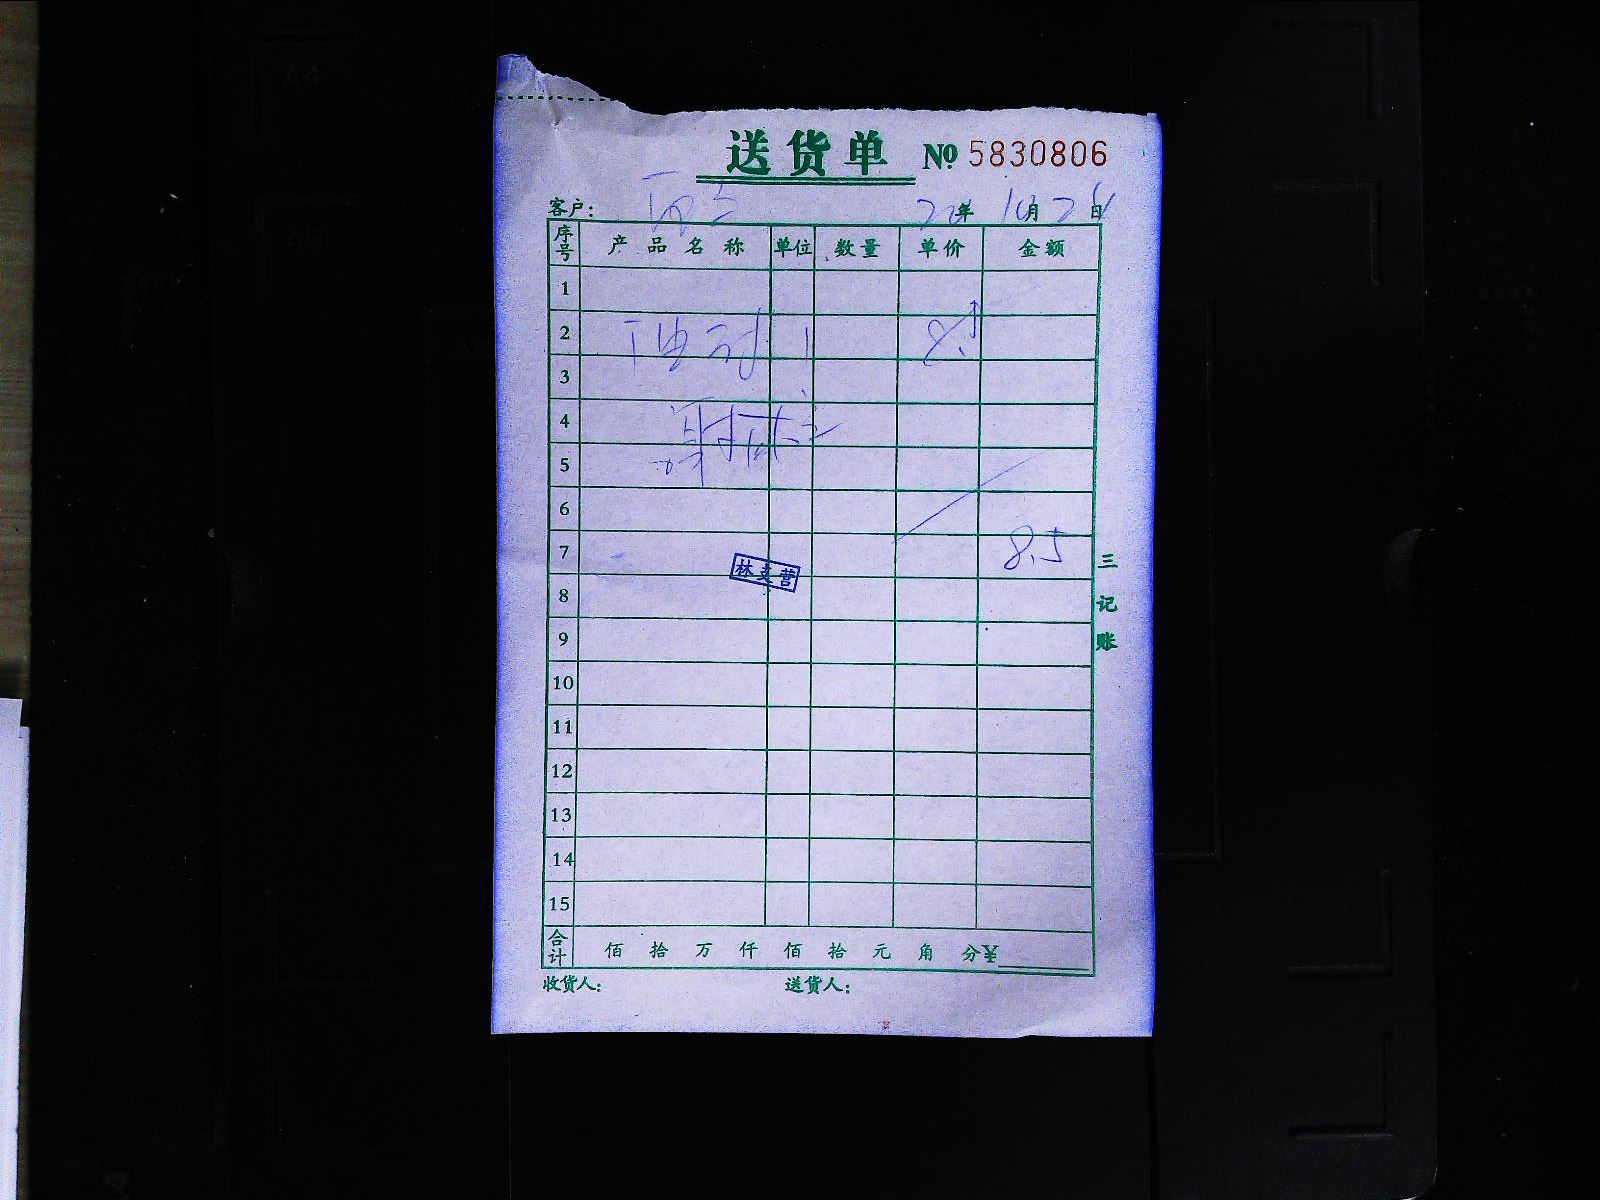 送货单 № 5830806
客户: 22年 10月 26日
序号 产品名称 单位 数量 单价 金额
1
2
3
4
5
6
7 8.5
林 营
8
9
10
11
12
13
14
15
合计 佰 拾 万 仟 佰 拾 元 角 分¥
收货人: 送货人:
三记账